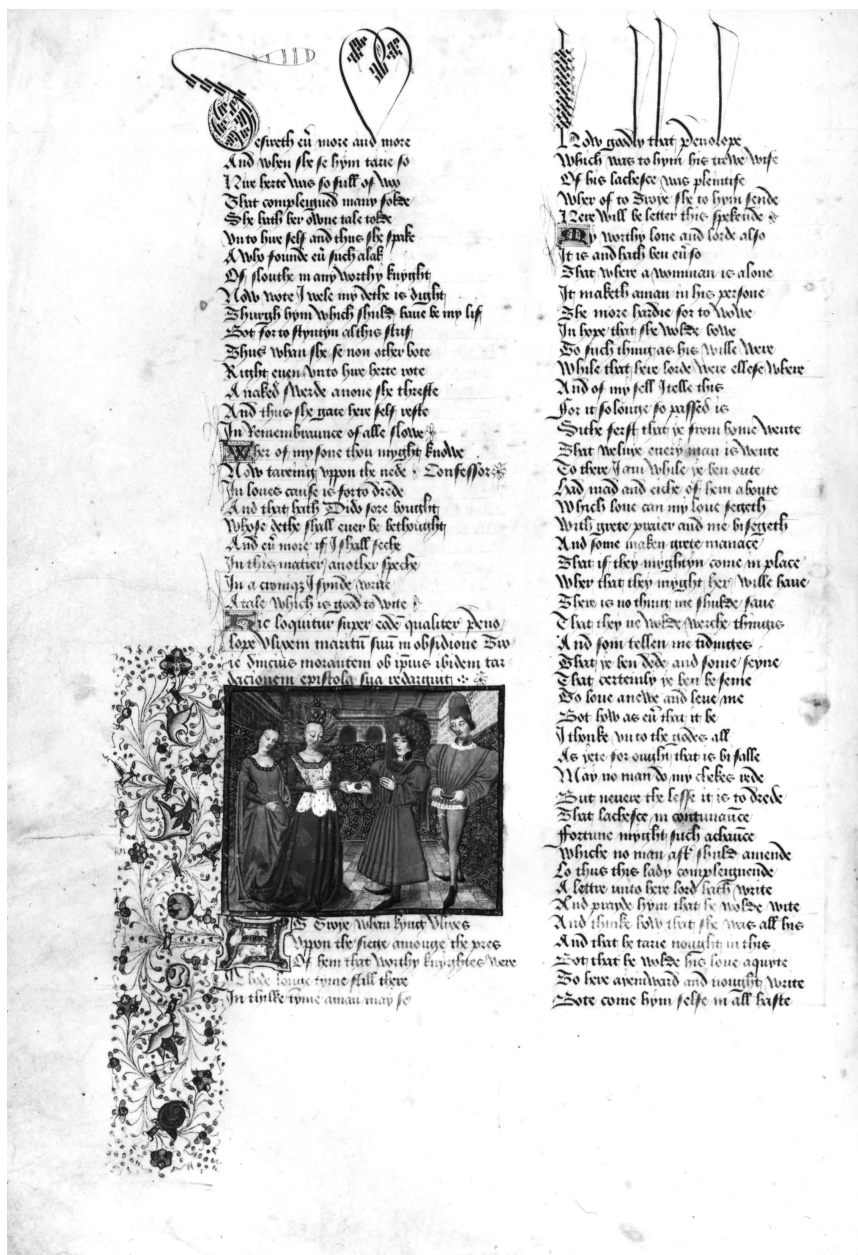 Desireth eũ more and more
And when she se hym tarie so
Hire herte was so full of wo
That compleigned many folde
She hath her owne tale tolde
Vnto hire self and thus she spake
A who founde eũ such a lak
Of slouthe in any worthy knyght
Now wote I wele my dethe is dight
Thurgh hym which shuld haue be my lif
Bot for to styntyn al this strif
Thus whan she se non other bote
Right even vnto hire herte rote
A naked swerde anone she threste
And thus she gate here self reste
In Remembraunce of alle slowe
Wher of my sone thou myght knowe
How tareing vppon the nede · Confessor
In loues cause is forto drede
And that hath Dido sore bought
Whose dethe shall euer be bethought
And eũ more if I shall seche
In this matier another speche
In a cronnq I fynde write
A tale which is good to wite
Hic loquitur super eodē qualiter Peno
lope Vlixem maritū suū in obsidione Tro
ie diucius morantem ob ipius ibidem tar
dacionem epistola sua redarguit
To Troye whan kyng Vlixes
Vppon the siege amonge the pres
Of hem that worthy knyghtes were
Abode longe tyme still there
In thilke tyme a man may se
How goodly that Penolope
Which was to hym his trewe wife
Of his lachesce was pleintife
Wher of to Troye she to hym sende
Here will be letter this spekende
My worthy loue and lorde also
It is and hath ben eũ so
That where a womman is alone
It maketh a man in his persone
The more hardie for to wowe
In hope that she wolde bowe
To such thing as his wille were
While that here lorde were ellese where
And of my self I telle this
For it so longe so passed is
Sithe ferst that ye from home wente
That welnye euery man is wente
To there I am while ye ben oute
Had mad and eche of hem aboute
Which loue can my loue segeth
With grete praier and me bisegeth
And some maken grete manace
That if they myghtyn come in place
Wher that they myght her wille haue
There is no thing me shulde saue
That they ne wolde werche thinges
And som tellen me tidinges
That ye ben dede and some seyne
That certeinly ye ben beseine
To loue anewe and leue me
Bot how as eũ that it be
I thonke vnto the godes all
As yete for ought that is bifalle
May no man do my chekes rede
But neuere the lesse it is to drede
That lachesce in contunaūce
Ffortune myght such achaūce
Whiche no man aft shuld amende
Lo thus this lady compleignende
A lettre vnto here lord hath write
And prayde hym that he wolde wite
And thinke how that she was all his
And that he tarie nought in this
Bot that he wolde his loue aquyte
To here ayenward and nought write
Bote come hym selfe in all haste